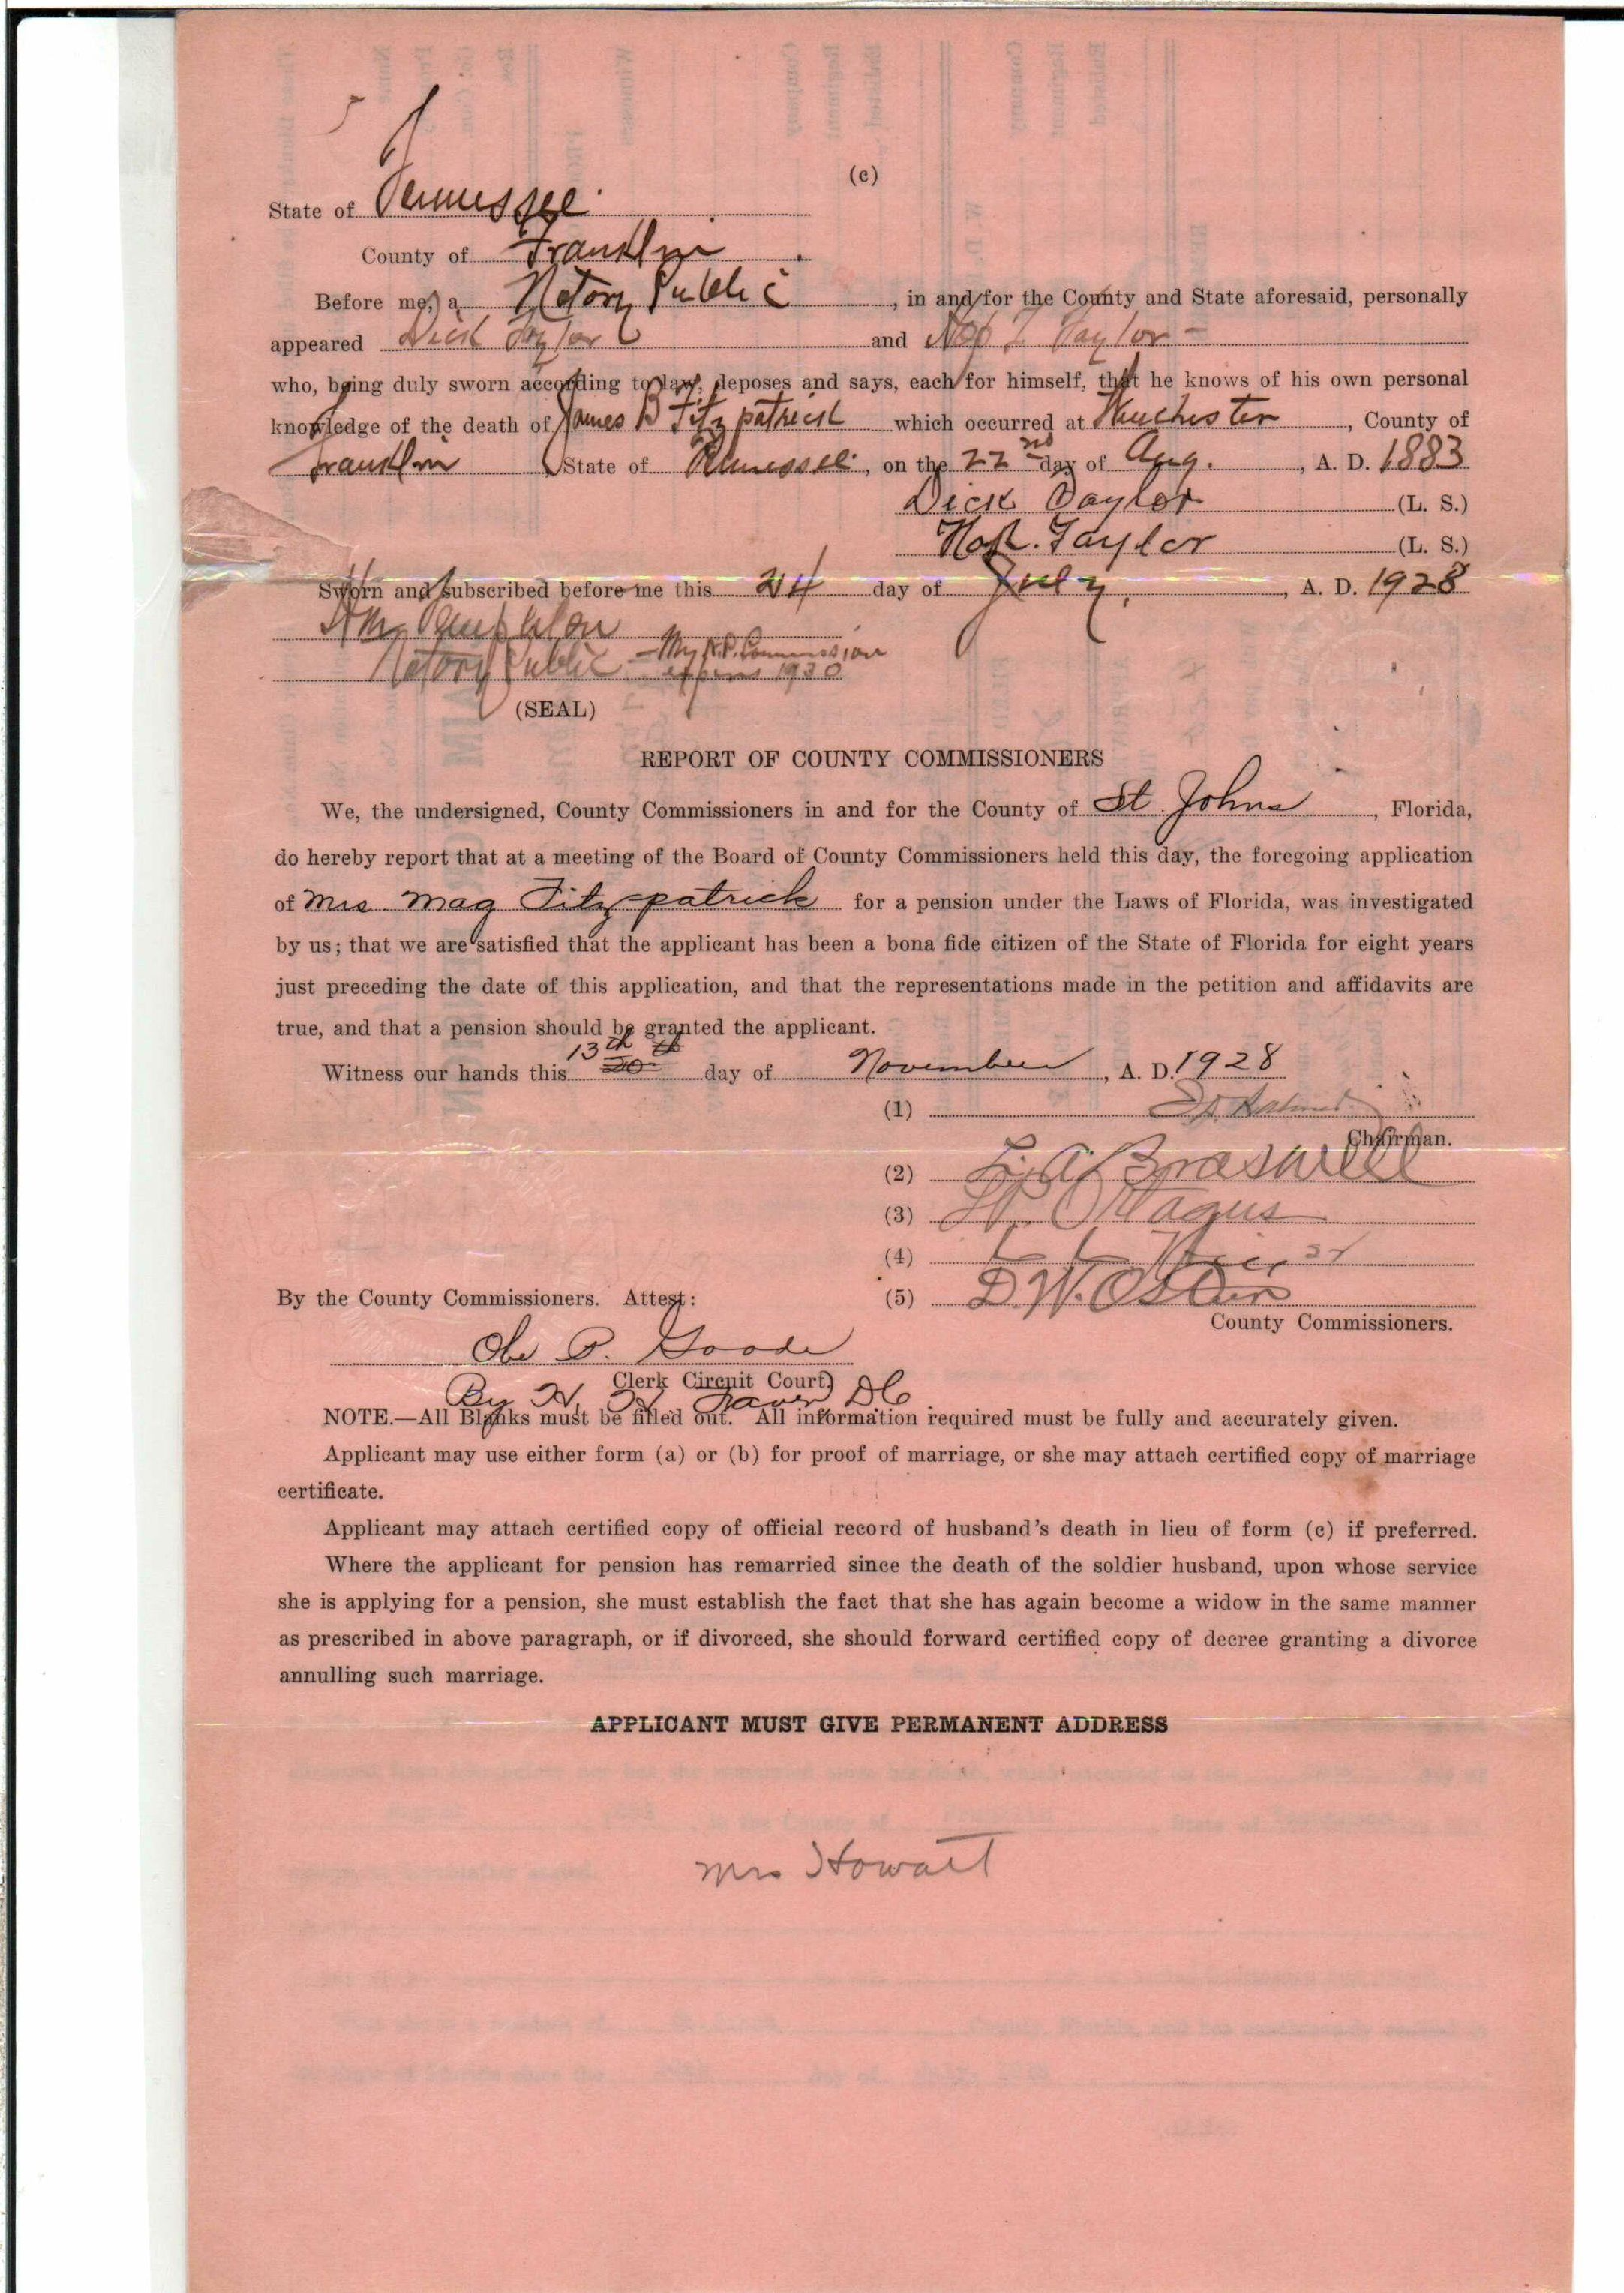 (c)
State of Tennessee
County of Franklin
Before me, a Notary Public, in and for the County and State aforesaid, personally
appeared Dick Taylor and Taylor
who, being duly sworn according to law, deposes and says, each for himself, that he knows of his own personal
knowledge of the death of James B Fitzpatrick which occurred at Winchester, County of
Franklin State of Tennessee, on the 22nd day of Aug., A. D. 1883
Dick Taylor (L. S.)
Taylor (L. S.)
Sworn and subscribed before me this 24 day of July, A. D. 1928
Notary Public - My N.P. Commission
expires 1930
(SEAL)
REPORT OF COUNTY COMMISSIONERS
We, the undersigned, County Commissioners in and for the County of St Johns, Florida,
do hereby report that at a meeting of the Board of County Commissioners held this day, the foregoing application
of Mrs Mag Fitzpatrick for a pension under the Laws of Florida, was investigated
by us; that we are satisfied that the applicant has been a bona fide citizen of the State of Florida for eight years
just preceding the date of this application, and that the representations made in the petition and affidavits are
true, and that a pension should be granted the applicant.
Witness our hands this 13th day of November, A. D. 1928
(1)
Chairman.
(2) L. A. Braswell
(3)
(4)
By the County Commissioners. Attest: (5) D. W.
County Commissioners.
Obe P. Goode
Clerk Circuit Court
By H. DC
NOTE.—All Blanks must be filled out. All information required must be fully and accurately given.
Applicant may use either form (a) or (b) for proof of marriage, or she may attach certified copy of marriage
certificate.
Applicant may attach certified copy of official record of husband's death in lieu of form (c) if preferred.
Where the applicant for pension has remarried since the death of the soldier husband, upon whose service
she is applying for a pension, she must establish the fact that she has again become a widow in the same manner
as prescribed in above paragraph, or if divorced, she should forward certified copy of decree granting a divorce
annulling such marriage.
APPLICANT MUST GIVE PERMANENT ADDRESS
Mrs Howatt